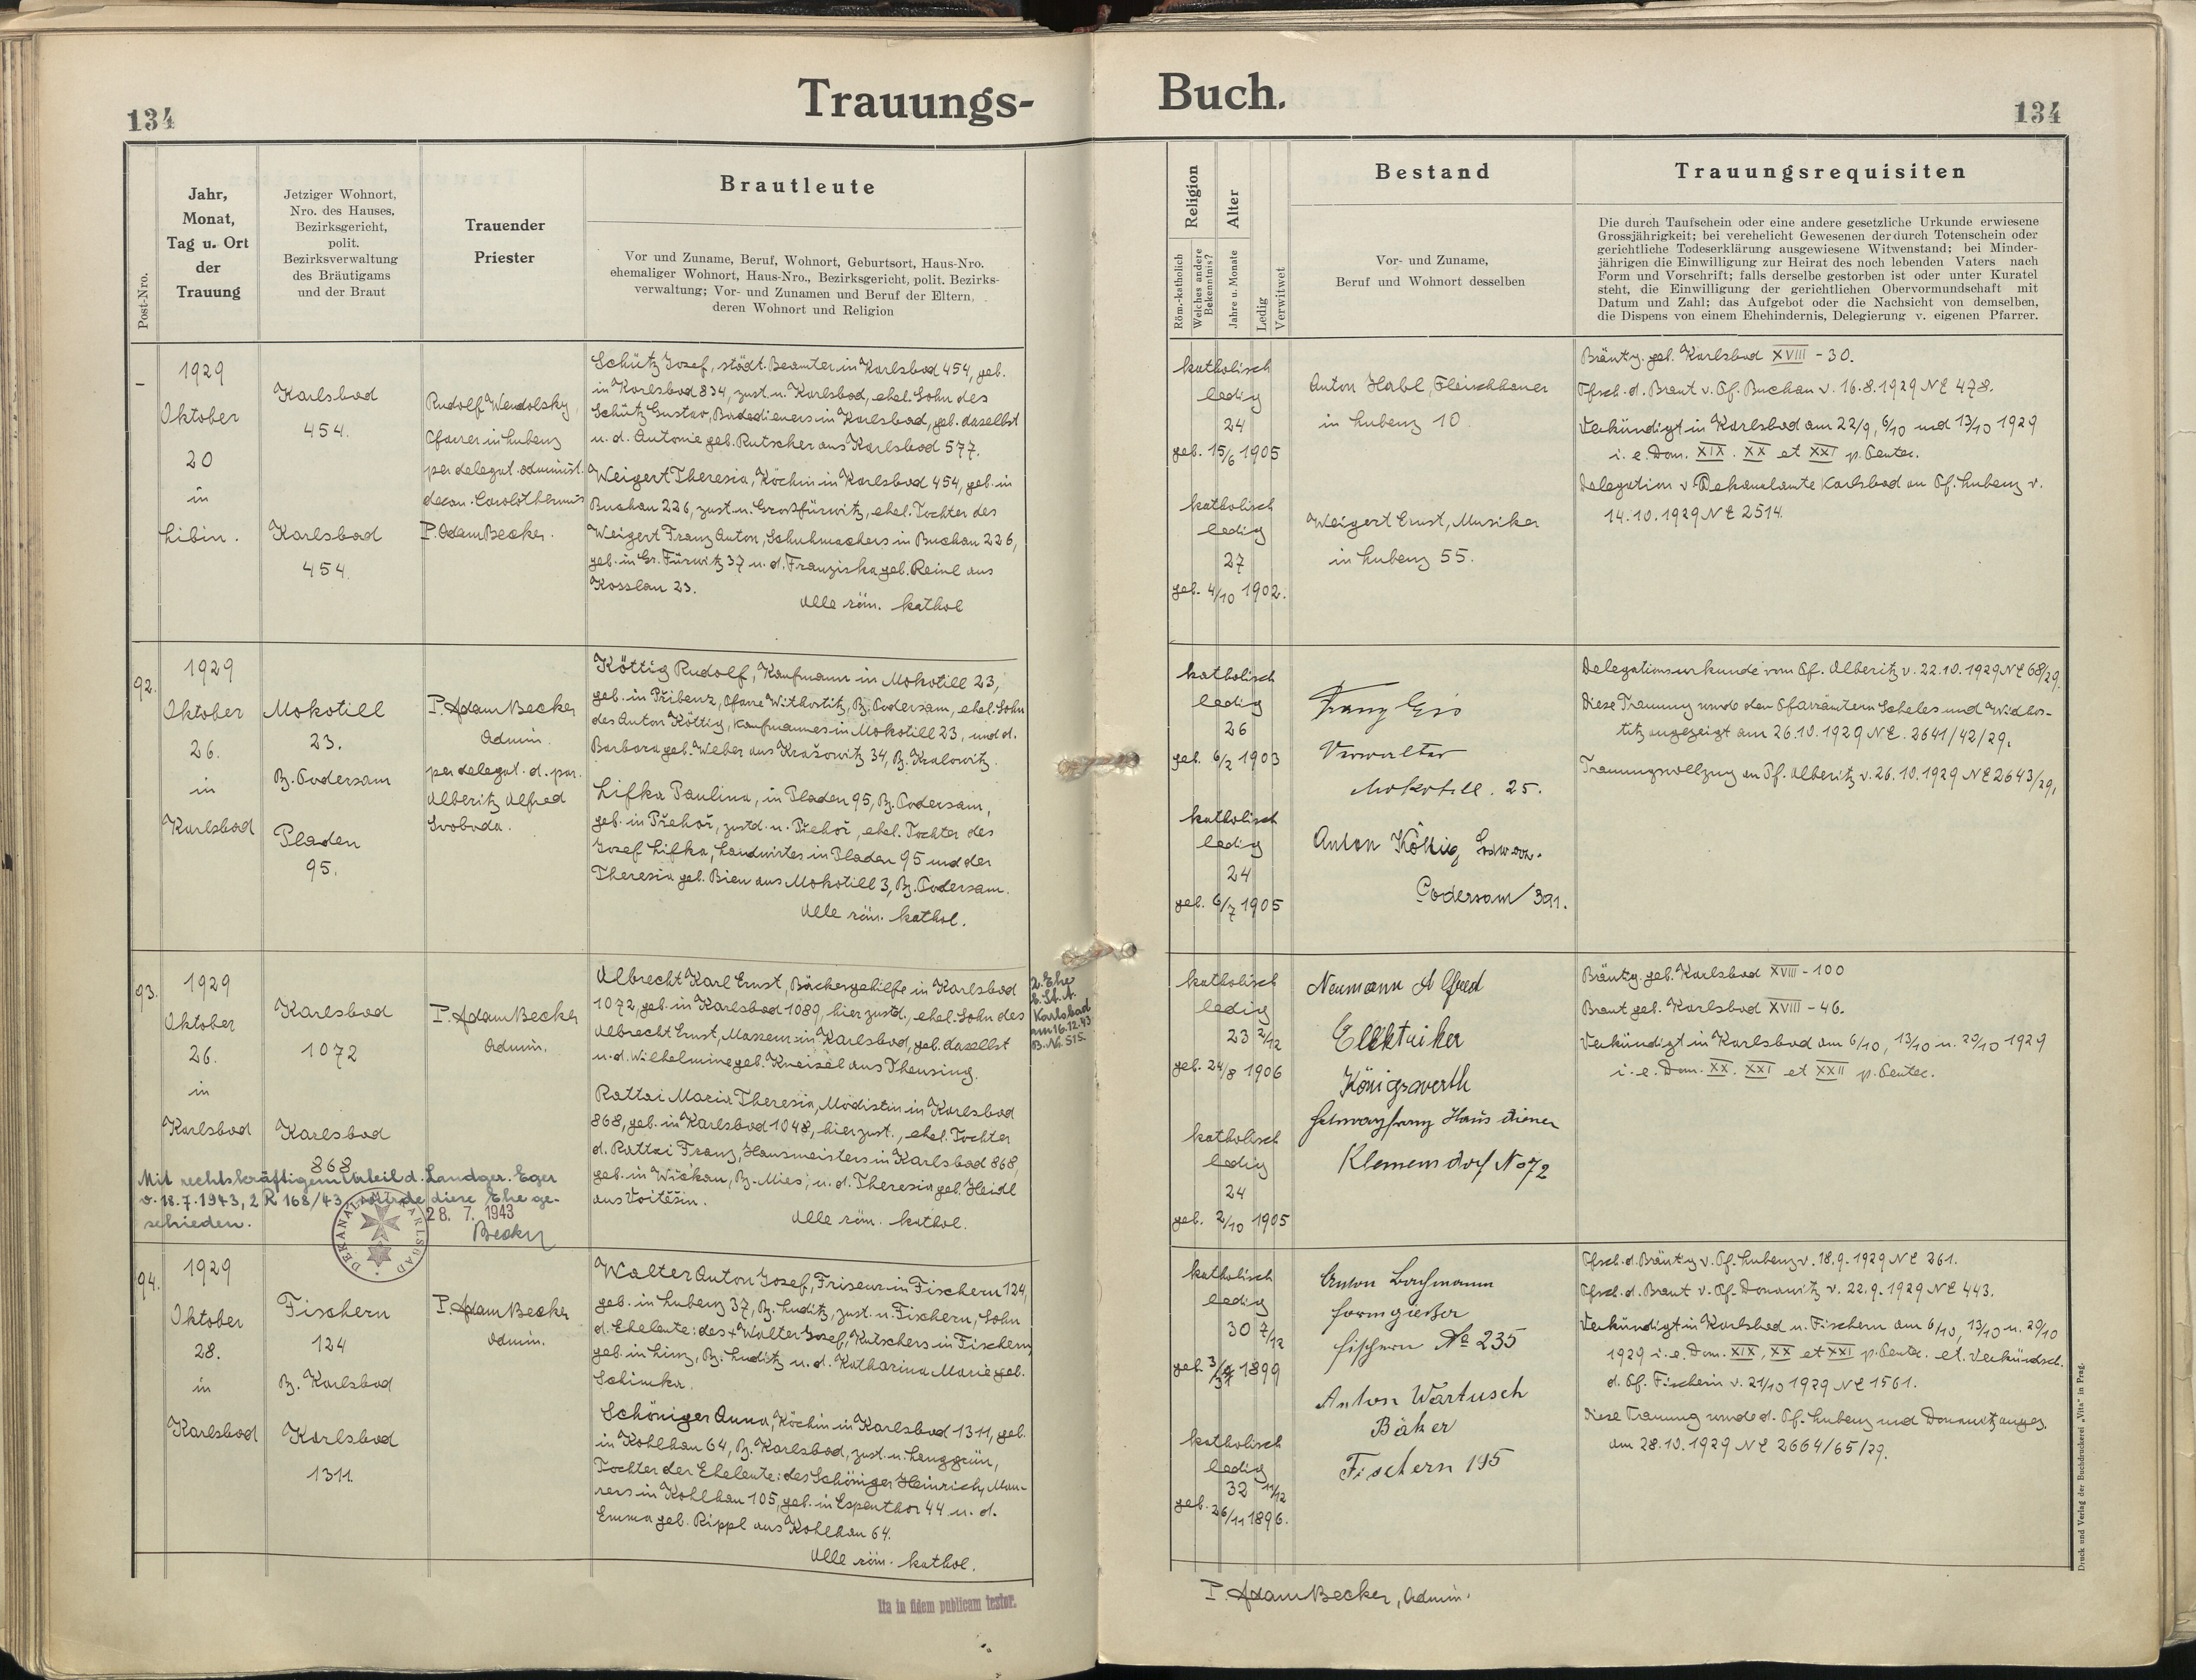 134
Trauungs-
Buch.
134
Post-Nro.
Jahr,
Monat,
Tag u. Ort
der
Trauung
Jetziger Wohnort,
Nro. des Hauses,
Bezirksgericht,
polit.
Bezirksverwaltung
des Bräutigams
und der Braut
Trauender
Priester
Brautleute
Vor und Zuname, Beruf, Wohnort, Geburtsort, Haus-Nro.
ehemaliger Wohnort, Haus-Nro., Bezirksgericht, polit. Bezirks-
verwaltung; Vor- und Zunamen und Beruf der Eltern,
deren Wohnort und Religion
Religion
Röm.-katholisch
Welches andere
Bekenntnis?
Alter
Jahre u. Monate
Ledig
Verwitwet
Bestand
Vor- und Zuname,
Beruf und Wohnort desselben
Trauungsrequisiten
Die durch Taufschein oder eine andere gesetzliche Urkunde erwiesene
Grossjährigkeit; bei verehelicht Gewesenen der durch Totenschein oder
gerichtliche Todeserklärung ausgewiesene Witwenstand; bei Minder-
jährigen die Einwilligung zur Heirat des noch lebenden Vaters nach
Form und Vorschrift; falls derselbe gestorben ist oder unter Kuratel
steht, die Einwilligung der gerichtlichen Obervormundschaft mit
Datum und Zahl; das Aufgebot oder die Nachsicht von demselben,
die Dispens von einem Ehehindernis, Delegierung v. eigenen Pfarrer.
–
1929
Oktober
20
in
Libin.
Karlsbad
454.
Karlsbad
454.
Rudolf Wendolsky,
Pfarrer in Lubenz
per delegat. administ.
decan. Carolothermis
P. Adam Becker.
Schütz Josef, städt. Beamter in Karlsbad 454, geb.
in Karlsbad 834, zust. n. Karlsbad, ehel. Sohn des
Schütz Gustav, Badedieners in Karlsbad, geb. daselbst
u. d. Antonie geb. Rutscher aus Karlsbad 577.
Weigert Theresia, Köchin in Karlsbad 454, geb. in
Buchau 226, zust. n. Grossfürwitz, ehel. Tochter des
Weigert Franz Anton, Schuhmachers in Buchau 226,
geb. in Gr. Fürwitz 37 u. d. Franziska geb. Reinl aus
Kosslau 23.
Alle röm. kathol
katholisch
ledig
24
geb. 15/6 1905
katholisch
ledig
27
geb. 4/10 1902.
Anton Habl, Fleischhauer
in Lubenz 10.
Weigert Ernst, Musiker
in Lubenz 55.
Bräutg. geb. Karlsbad XVIII - 30.
Tfsch. d. Braut v. Pf. Buchau v. 16.8.1929 NE 478.
Verkündigt in Karlsbad am 22/9, 6/10 und 13/10 1929
i. e. Dom. XIX. XX et XXI p. Pentec.
Delegation v. Dekanalamte Karlsbad an Pf. Lubenz v.
14.10.1929 NE 2514.
92.
1929
Oktober
26.
in
Karlsbad
Mokotill
23.
Bz. Podersam
Pladen
95.
P. Adam Becker
Admin.
per delegat. d. par.
Alberitz Alfred
Svoboda.
Köttig Rudolf, Kaufmann in Mokotill 23,
geb. in Přibenz, Pfarre Withostitz, Bz. Podersam, ehel. Sohn
des Anton Köttig, Kaufmannes in Mokotill 23, und d.
Barbara geb. Weber aus Krašowitz 34, Bz. Kralowitz.
Lifka Paulina, in Pladen 95, Bz. Podersam,
geb. in Přehoř, zustd. n. Přehoř, ehel. Tochter des
Josef Lifka, Landwirtes in Pladen 95 und der
Theresia geb. Bien aus Mokotill 3, Bz. Podersam.
Alle röm. kathol.
katholisch
ledig
26
geb. 6/2 1903
katholisch
ledig
24
geb. 6/7 1905
Franz Eis
Verwalter
Mokotill. 25.
Anton Köttig
Podersam / 391.
Delegationsurkunde vom Pf. Alberitz v. 22.10.1929 NE 68/29.
Diese Trauung wurde den Pfarrämtern Scheles und Widhos-
titz angezeigt am 26.10.1929 NE. 2641/42/29.
Trauungsvollzug an Pf. Alberitz v. 26.10.1929 NE 2643/29.
93.
1929
Oktober
26.
in
Karlsbad
Karlsbad
1072
Karlsbad
868
P. Adam Becker
Admin.
Albrecht Karl Ernst, Bäckergehilfe in Karlsbad
1072, geb. in Karlsbad 1089, hier zustd., ehel. Sohn des
Albrecht Ernst, Masseurs in Karlsbad, geb. daselbst
u. d. Wilhelmine geb. Kneisel aus Theusing.
Rattai Maria Theresia, Modistin in Karlsbad
868, geb. in Karlsbad 1048, hier zust., ehel. Tochter
d. Rattai Franz, Hausmeisters in Karlsbad 868,
geb. in Wičkau, Bz. Mies; u. d. Theresia geb. Heidl
aus Voitěšin.
Alle röm. kathol.
2. Ehe
b. St. A.
Karlsbad
am 16.12.43
B. Nr. 515.
Mit rechtskräftigem Urteil d. Landger. Eger
v. 18.7.1943, 2 R 168/43 wurde diese Ehe ge-
schieden.
28. 7. 1943
Becker
DEKANALAMT KARLSBAD
katholisch
ledig
23 2/12
geb. 24/8 1906
katholisch
ledig
24
geb. 2/10 1905
Neumann Alfred
Elektriker
Königswerth
Franz Hausdiener
Klemensdorf No 72
Bräutg. geb. Karlsbad XVIII - 100
Braut geb. Karlsbad XVIII - 46.
Verkündigt in Karlsbad am 6/10, 13/10 u. 20/10 1929
i. e. Dom. XX. XXI et XXII p. Pentec.
94.
1929
Oktober
28.
in
Karlsbad
Fischern
124
Bz. Karlsbad
Karlsbad
1311.
P. Adam Becker
Admin.
Walter Anton Josef, Friseur in Fischern 124,
geb. in Lubenz 37, Bz. Luditz, zust. n. Fischern, Sohn
d. Eheleute: des + Walter Josef, Kutschers in Fischern
geb. in Linz, Bz. Luditz u. d. Katharina Marie geb.
Schimka.
Schöniger Anna, Köchin in Karlsbad 1311, geb.
in Kohlhau 64, Bz. Karlsbad, zust. n. Lenggrün,
Tochter der Eheleute: des Schöniger Heinrich, Mau-
rers in Kohlhau 105, geb. in Espenthor 44 u. d.
Emma geb. Rippl aus Kohlhau 64.
Alle röm. kathol.
katholisch
ledig
30 7/12
geb. 1899
katholisch
ledig
32 11/12
geb. 26/11 1896.
Anton Bachmann
Formgießer
Fischern No 235
Anton Wartusch
Bäker
Fischern 195
Tfsch. d. Bräutg v. Pf. Lubenz v. 18.9.1929 NE 261.
Tfsch. d. Braut v. Pf. Donawitz v. 22.9.1929 NE 443.
Verkündigt in Karlsbad u. Fischern am 6/10, 13/10 u. 20/10
1929 i. e. Dom. XIX, XX et XXI p. Pentec. et. Verkündsch.
d. Pf. Fischern v. 21/10 1929 NE 1561.
Diese Trauung wurde d. Pf. Lubenz und Donawitz angez.
am 28.10.1929 NE 2664/65/29.
Ita in fidem publicam testor.
P. Adam Becker, Admin.
Druck und Verlag der Buchdruckerei „Vita" in Prag.